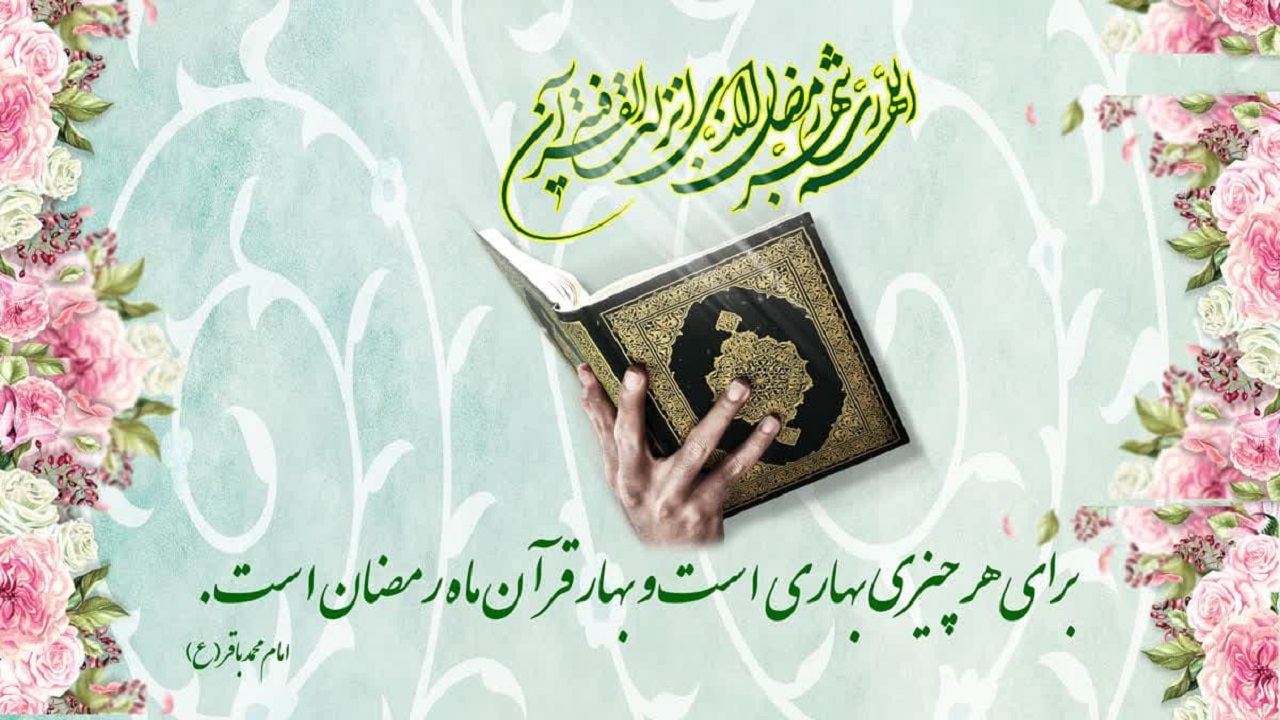 اللهم رب شهر رمضان الذی انزلت فیه القرآن
برای هر چیزی بهاری است و بهار قرآن ماه رمضان است.
امام محمد باقر (ع)